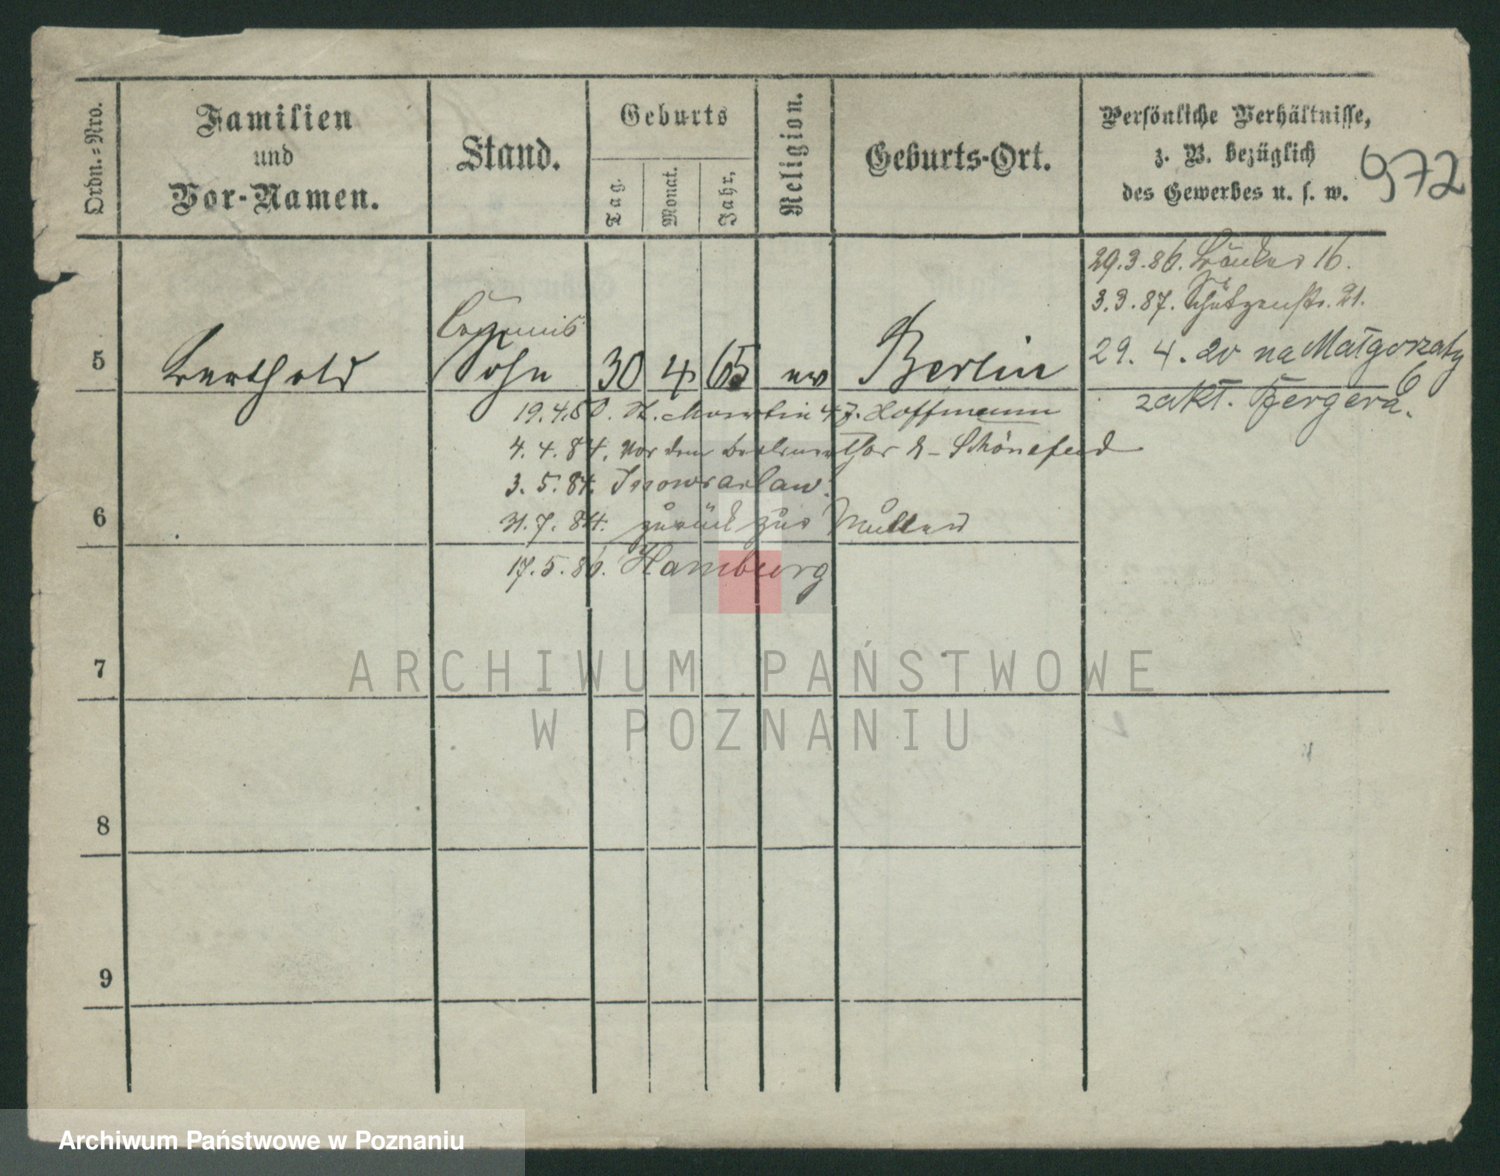 Ordn.-Nro.
Familien
und
Vor-Namen.
Stand.
Geburts
Tag.
Monat.
Jahr.
Religion.
Geburts-Ort.
Persönliche Verhältnisse,
z. B. bezüglich
des Gewerbes u. s. w.
972
29.3.86. 16.
3.3.87. Schützenstr. 21.
5
Berthold
Sohn
30
4
65
ev
Berlin
29. 4. 20 na Małgorzaty 6
zakł. Bergera.
St. Martin 47. Hoffmann
4.4.84. Vor dem Berlinerthor 2 Schönefeld
3.5.84. Inowraclaw.
6
31.7.84. zurück zur Mutter
17.5.86. Hamburg
7
8
9
ARCHIWUM PAŃSTWOWE
W POZNANIU
Archiwum Państwowe w Poznaniu